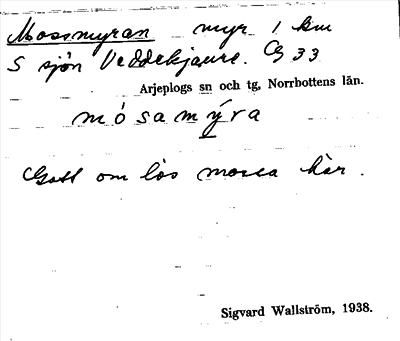 Mossmyran myr 1 km
S sjön Veddekjaure. Cg 33
Arjeplogs sn och tg, Norrbottens län.
mósamýra
Gott om lös mossa här.
Sigvard Wallström, 1938.